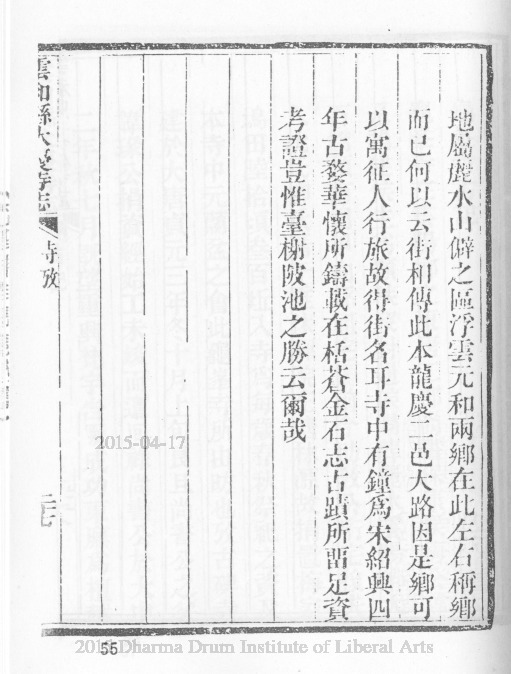 地屬麗水山僻之區浮雲元和兩鄉在此左右稱鄉
而已何以云街相傳此本龍慶二邑大路因是鄉可
以寓征人行旅故得街名耳寺中有鐘爲宋紹興四
年古婺華懷所鑄載在栝蒼金石志古蹟所畱足資
考證豈惟臺榭陂池之勝云爾哉
雲和縣大慶寺志
寺攷
二七
2015-04-17
55
2015 Dharma Drum Institute of Liberal Arts